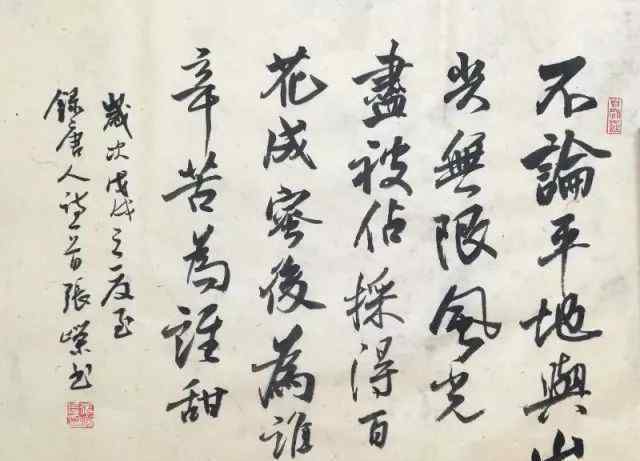 不論平地與山
尖無限風光
盡被佔採得百
花成蜜後為誰
辛苦為誰甜
歲次戊戌之夏至
錄唐人詩一首張書